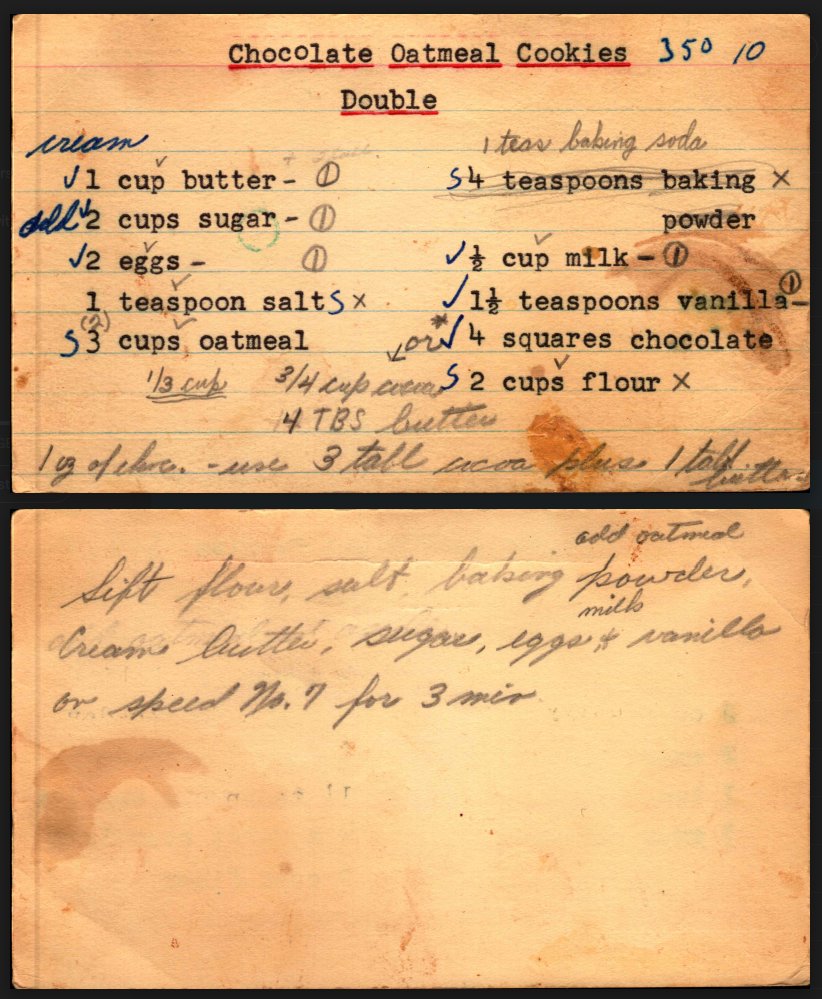 Chocolate Oatmeal Cookies 350 10
Double
cream
1 teas baking soda
✓ 1 cup butter - ①
S 4 teaspoons baking powder ×
add ✓ 2 cups sugar - ①
✓ 2 eggs - ①
✓ ½ cup milk - ①
1 teaspoon salt S ×
✓ 1½ teaspoons vanilla - ①
S 3 (2) cups oatmeal
or * ✓ 4 squares chocolate
1/3 cup
3/4 cup cocoa
S 2 cups flour ×
4 TBS butter
1 oz of choc. - use 3 tabl cocoa plus 1 tabl butter
add oatmeal
Sift flour, salt, baking powder,
milk
Cream butter, sugar, eggs & vanilla
on speed No. 7 for 3 min